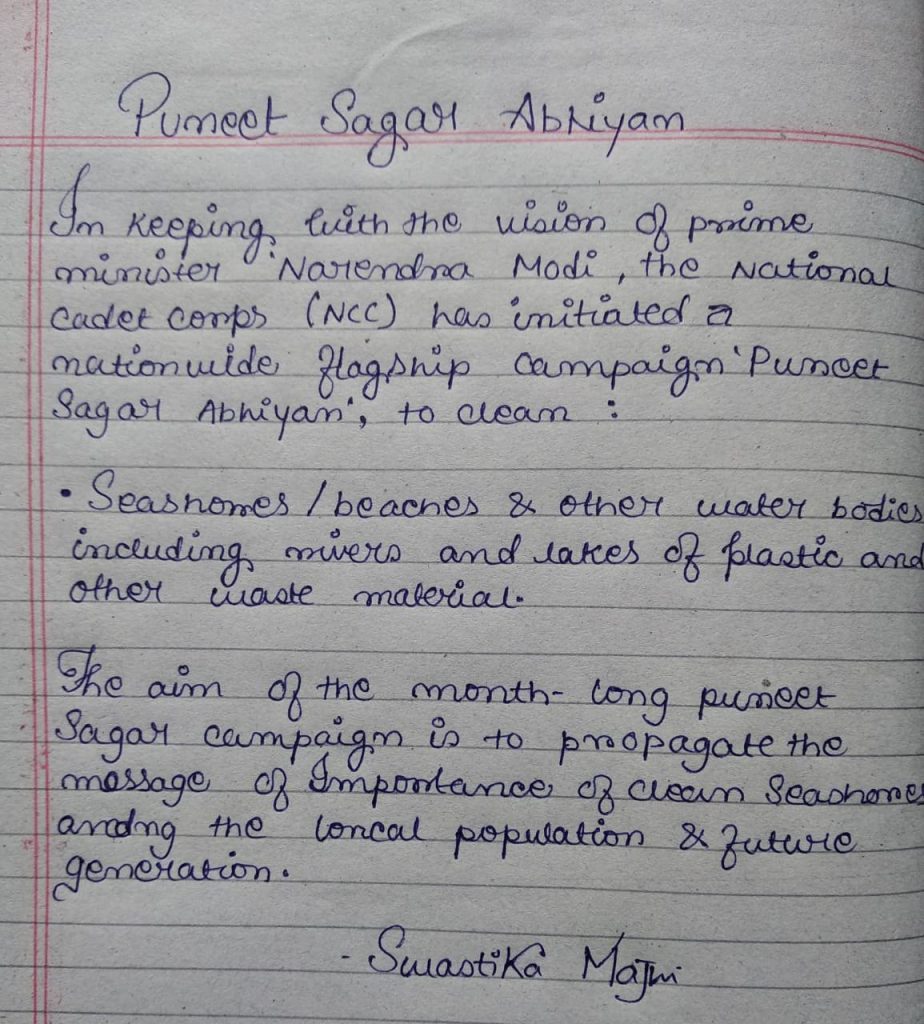 Puneet Sagar Abhiyan
In keeping with the vision of prime
minister Narendra Modi, the National
Cadet Corps (NCC) has initiated a
nationwide flagship campaign 'Puneet
Sagar Abhiyan', to clean :
• Seashores / beaches & other water bodies
including rivers and lakes of plastic and
other waste material.
The aim of the month-long puneet
Sagar campaign is to propagate the
message of Importance of clean Seashore
among the loncal population & future
generation.
- Swastika Majhi